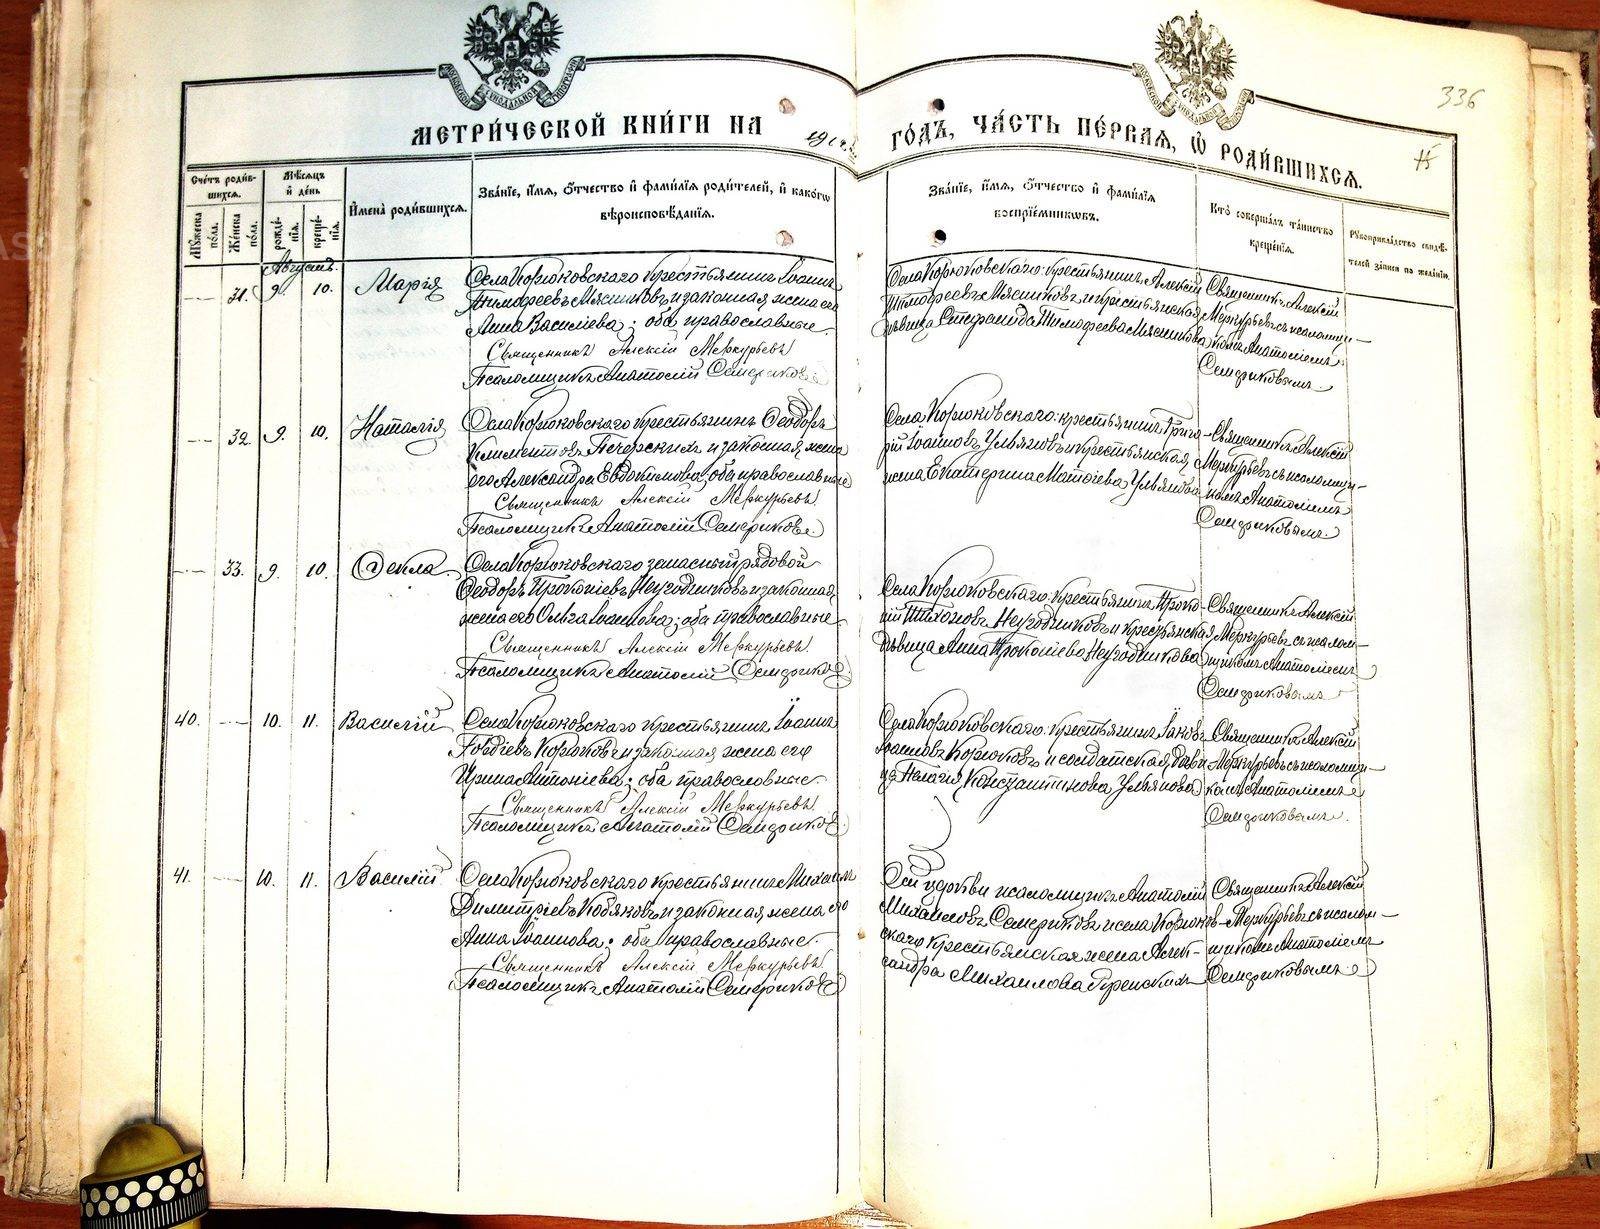 336
МОСКОВСКОЙ СѴНОДАЛЬНОЙ ТИПОГРАФІИ
МОСКОВСКОЙ СѴНОДАЛЬНОЙ ТИПОГРАФІИ
МЕТРИ́ЧЕСКОЙ КНИ́ГИ НА
ГО́ДЪ, ЧА́СТЬ ПЕ́РВАЯ, Ѡ҆ РОДИ́ВШИХСЯ.
Сче́тъ роди́в-
шихся.
Мѣ́сяцъ
и҆ де́нь
Му́жеска по́ла.
Же́нска по́ла.
рожде́-
нїя.
креще́-
нїя.
И҆мена̀ роди́вшихся.
Зва́нїе, и҆́мя, ѻ҆́тчество и҆ фами́лїя роди́телей, и҆ како́гѡ
вѣроисповѣ́данїя.
Зва́нїе, и҆́мя, ѻ҆́тчество и҆ фами́лїя
воспрїе́мникѡвъ.
Кто̀ соверша́лъ та́инство
креще́нїя.
Рꙋкоприкла́дство свидѣ́-
телей за́писи по жела́нїю.
Августъ.
31. 9. 10. Марія
Села Корюковскаго крестьянинъ Іоаннъ
Тимофеевъ Мясниковъ и законная жена его
Анна Василіева; оба православные.
Священникъ Алексій Меркурьевъ
Псаломщикъ Анатолій Семериковъ
Села Корюковскаго: крестьянинъ Алексій
Тимофеевъ Мясниковъ и крестьянская
дѣвица Стефанида Тимофеева Мясникова
Священникъ Алексій
Меркурьевъ съ псаломщи-
комъ Анатоліемъ
Семериковымъ
32. 9. 10. Наталія
Села Корюковскаго крестьянинъ Ѳеодоръ
Климентовъ Печерскихъ и законная жена
его Александра Евдокимова; оба православные
Священникъ Алексій Меркурьевъ
Псаломщикъ Анатолій Семериковъ
Села Корюковскаго: крестьянинъ Григо-
рій Іоанновъ Ульяновъ и крестьянская
жена Екатерина Матѳіева Ульянова
Священникъ Алексій
Меркурьевъ съ псаломщи-
комъ Анатоліемъ
Семериковымъ.
33. 9. 10. Ѳекла
Села Корюковскаго запасный рядовой
Ѳеодоръ Прокопіевъ Неугодниковъ и законная
жена его Ольга Іоаннова; оба православные
Священникъ Алексій Меркурьевъ
Псаломщикъ Анатолій Семериковъ
Села Корюковскаго: крестьянинъ Проко-
пій Тихоновъ Неугодниковъ и крестьянская
дѣвица Анна Прокопіева Неугодникова
Священникъ Алексій
Меркурьевъ съ псалом-
щикомъ Анатоліемъ
Семериковымъ
40. 10. 11. Василій
Села Корюковскаго крестьянинъ Іоаннъ
Гордіевъ Корюковъ и законная жена его
Ирина Антоніева; оба православные
Священникъ Алексій Меркурьевъ
Псаломщикъ Анатолій Семериковъ
Села Корюковскаго: крестьянинъ Іаковъ
Іоанновъ Корюковъ и солдатская дѣви-
ца Пелагія Константинова Ульянова
Священникъ Алексій
Меркурьевъ съ псаломщи-
комъ Анатоліемъ
Семериковымъ.
41. 10. 11. Василій
Села Корюковскаго крестьянинъ Михаилъ
Димитріевъ Кобяковъ и законная жена его
Анна Іоаннова; оба православные.
Священникъ Алексій Меркурьевъ
Псаломщикъ Анатолій Семериковъ
Сей церкви псаломщикъ Анатолій
Михайловъ Семериковъ и села Корюков-
скаго крестьянская жена Алек-
сандра Михаилова
Священникъ Алексій
Меркурьевъ съ псалом-
щикомъ Анатоліемъ
Семериковымъ